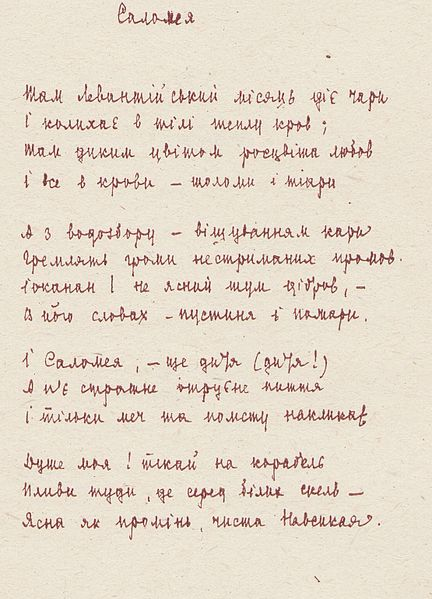 Саломея
Там левантійський місяць діє чари
І колихає в тілі теплу кров;
Там диким цвітом росцвіта любов
І все в крови – шоломи і тіари
А з водозбору – віщуванням кари
Гремлять громи нестриманих промов.
Іоканан! не ясний шум дібров, –
В його словах – пустиня і пожари.
І Саломея, – ще дитя (дитя!)
А п'є страшне отруєне пиття
І тільки меч та помсту накликає
Душе моя! тікай на корабель
Пливи туди, де серед білих скель –
Ясна як промінь, чиста Навсікая.